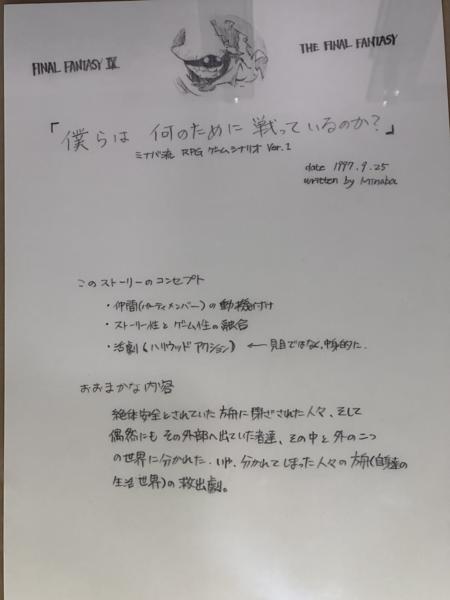 FINAL FANTASY IX
THE FINAL FANTASY
「僕らは 何のために 戦っているのか?」
ミナバ流 RPG ゲームシナリオ Ver.1
date 1997.9.25
written by Minaba
このストーリーのコンセプト
・仲間(パーティメンバー)の動機付け
・ストーリー性とゲーム性の融合
・活劇(ハリウッドアクション) ← 見目ではなく、中身的に.
おおまかな内容
絶体安全とされていた方舟に閉ざされた人々、そして
偶然にもその外部へ出ていた者達、その中と外の二つ
の世界に分かれた、いや、分かれてしまった人々の方舟(自分達の
生活世界)の救出劇。